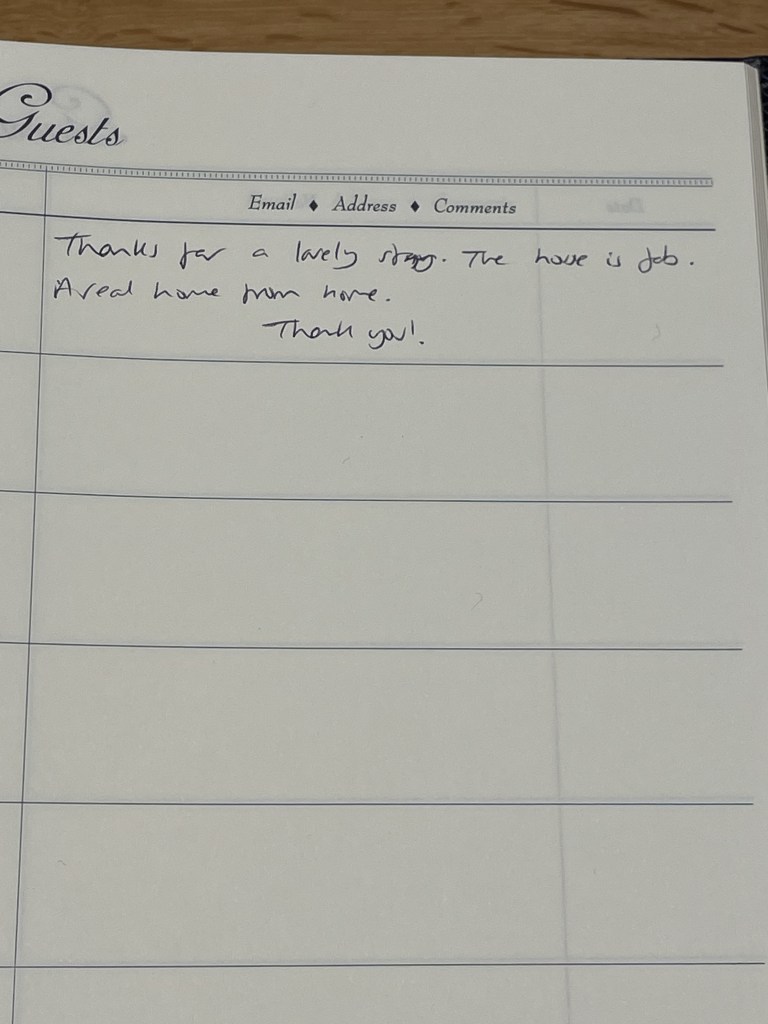 Guests
Email ♦ Address ♦ Comments
Thanks for a lovely stay. The house is fab.
A real home from home.
Thank you!